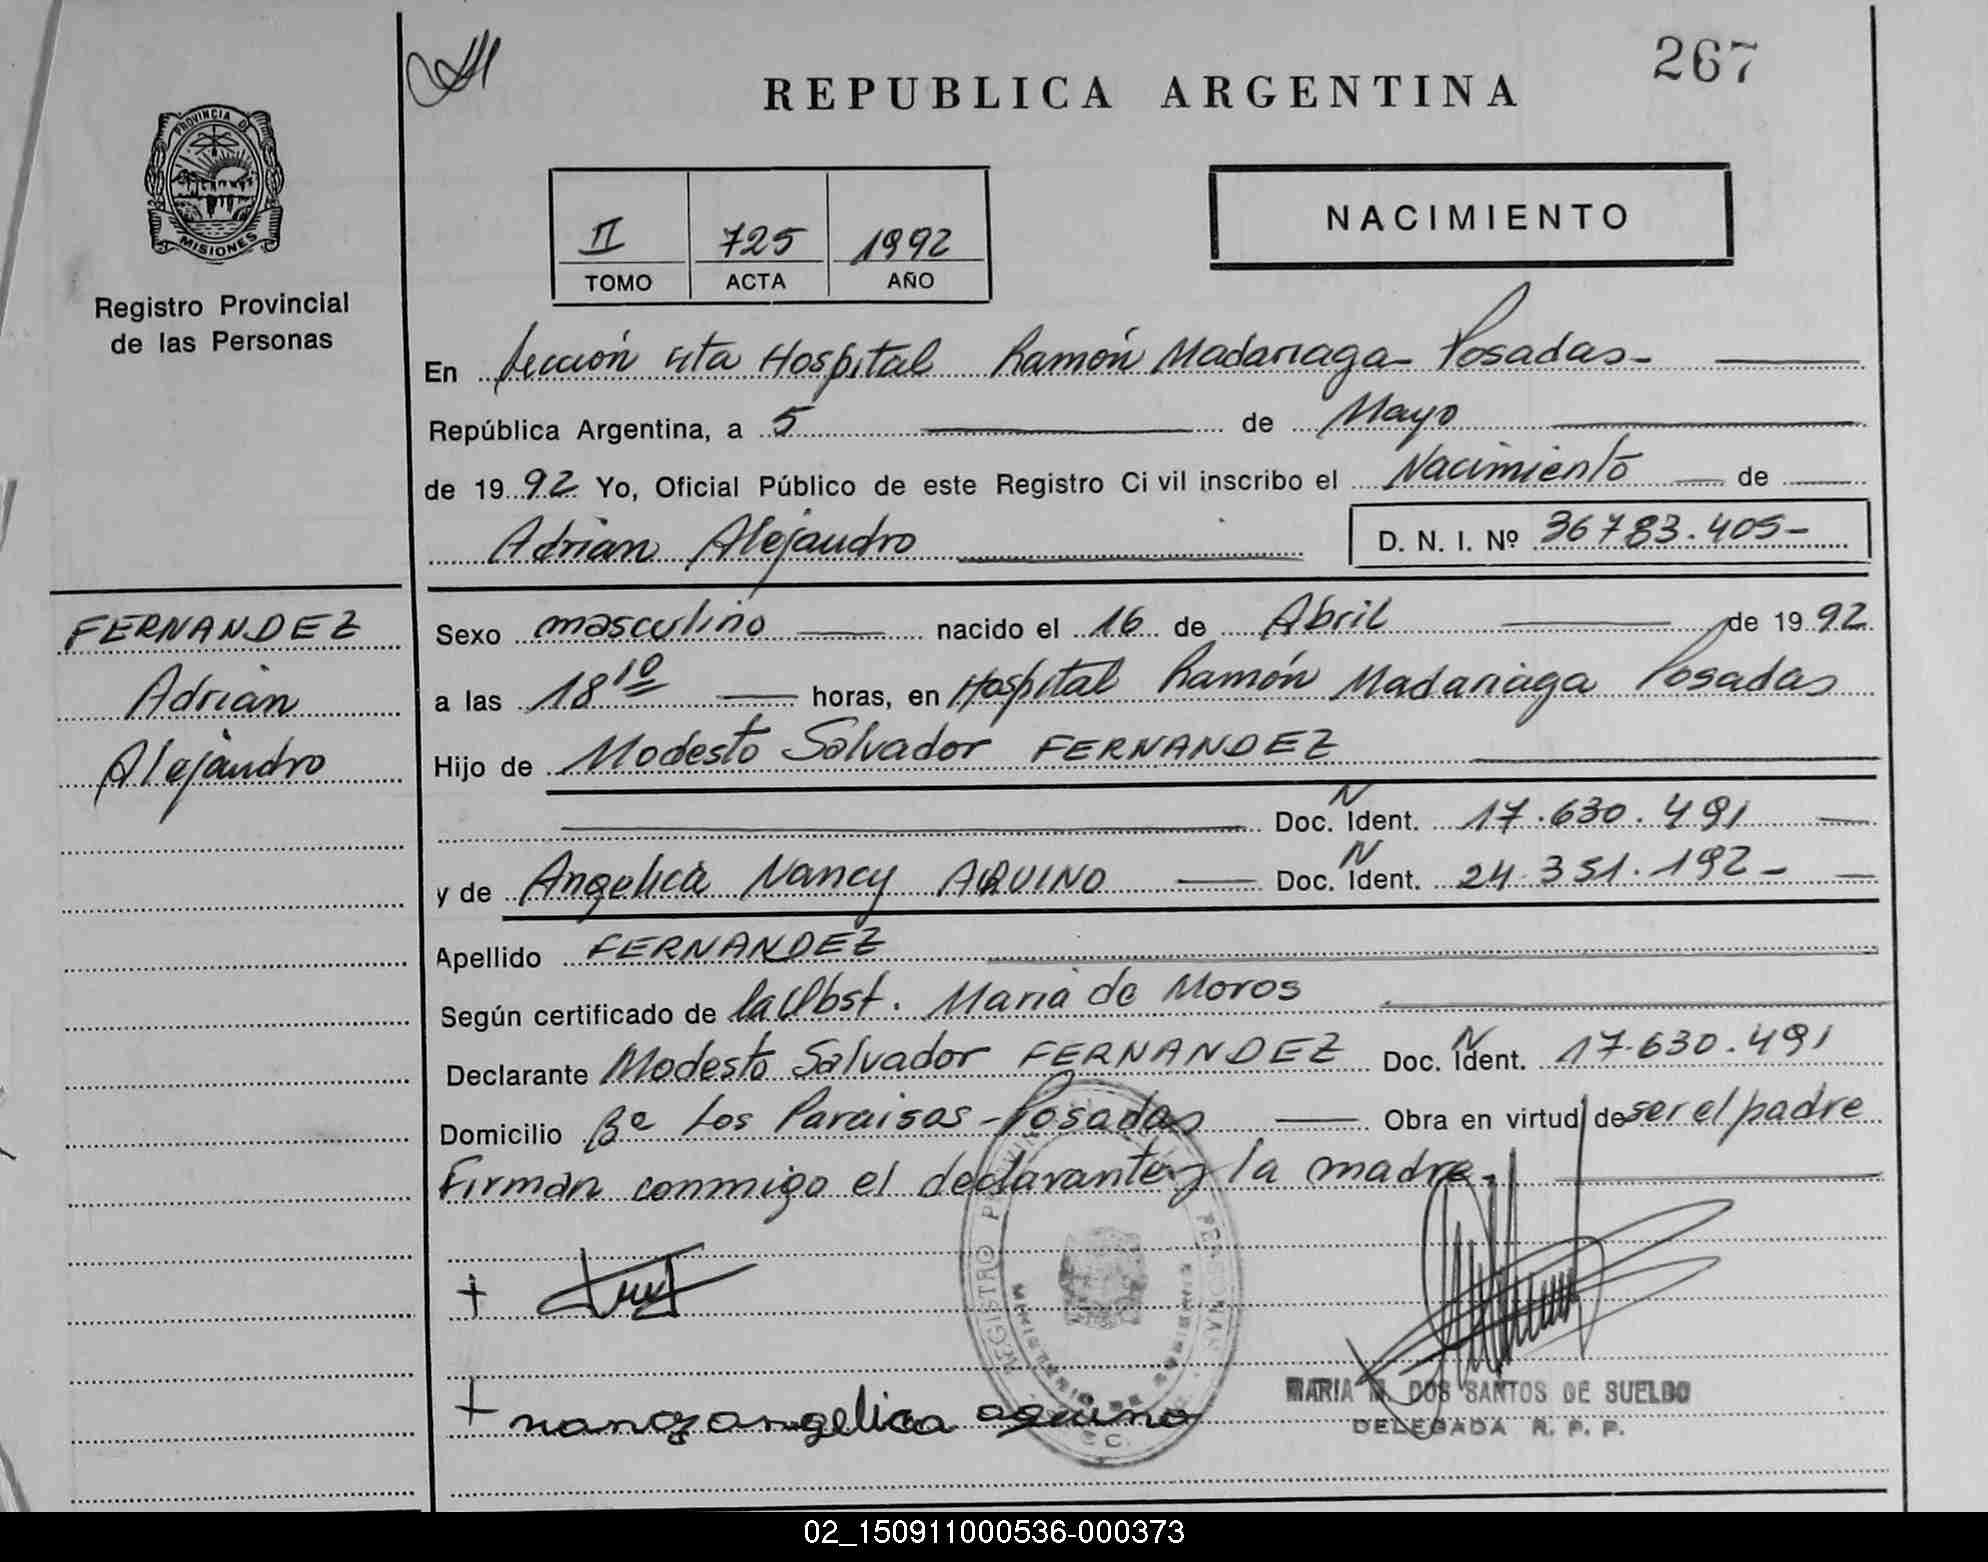 267
REPUBLICA ARGENTINA
PROVINCIA DE
MISIONES
Registro Provincial
de las Personas
II 725 1992
TOMO ACTA AÑO
NACIMIENTO
En Sección 4ta Hospital Ramón Madariaga - Posadas -
República Argentina, a 5 de Mayo
de 1992 Yo, Oficial Público de este Registro Civil inscribo el Nacimiento de
Adrian Alejandro D. N. I. Nº 36783.405-
FERNANDEZ
Adrian
Alejandro
Sexo masculino nacido el 16 de Abril de 1992
a las 18 10 horas, en Hospital Ramón Madariaga Posadas
Hijo de Modesto Salvador FERNANDEZ
N
Doc. Ident. 17.630.491
N
y de Angelica Nancy AQUINO Doc. Ident. 24.351.192-
Apellido FERNANDEZ
Según certificado de la Obst. Maria de Moros
N
Declarante Modesto Salvador FERNANDEZ Doc. Ident. 17.630.491
Domicilio Bº Los Paraisos - Posadas Obra en virtud de ser el padre
Firman conmigo el declarante y la madre.
REGISTRO
MINISTERIO DE
nancy angelica aquino
MARIA M. DOS SANTOS DE SUELDO
DELEGADA R. P. P.
02_150911000536-000373